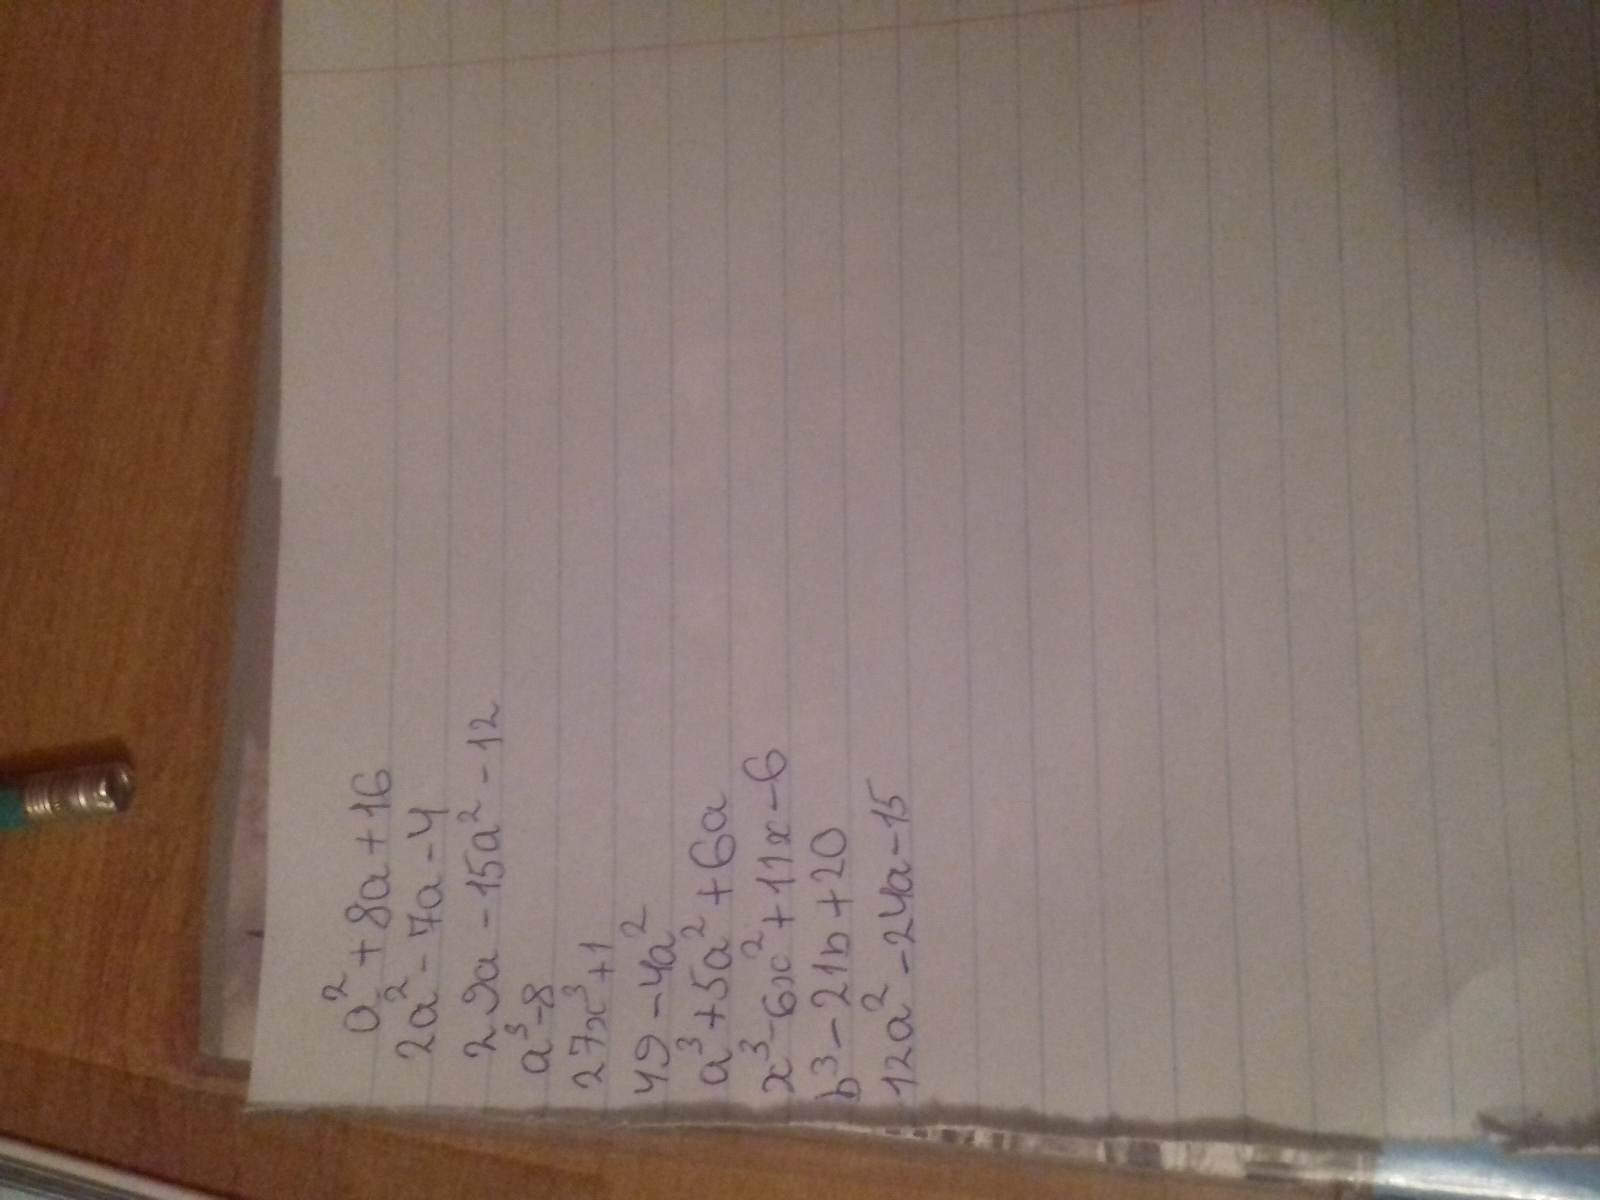 a² + 8a + 16
2a² - 7a - 4
29a - 15a² - 12
a³ - 8
27x³ + 1
49 - 4a²
a³ + 5a² + 6a
x³ - 6x² + 11x - 6
b³ - 21b + 20
12a² - 24a - 15